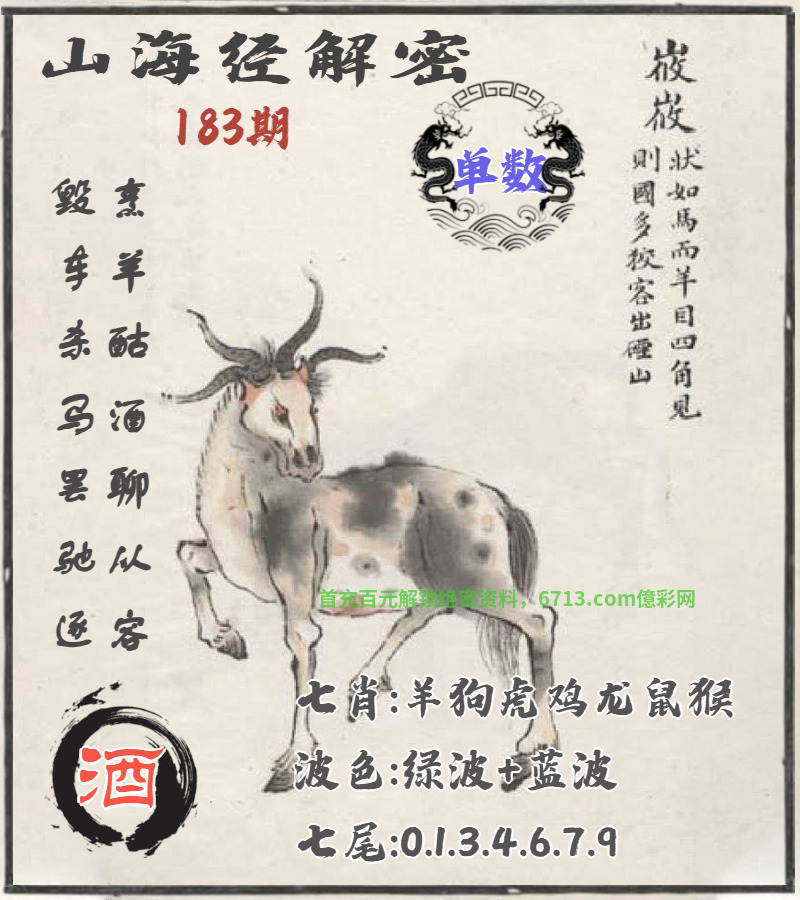 山海经解密
183期
单数
峳峳
狀如馬而羊目四角見
則國多狡客出䃌山
烹羊酤酒聊从容
毁车杀马罢驰逐
首充百元解锁免费资料，6713.com億彩网
酒
七肖:羊狗虎鸡龙鼠猴
波色:绿波+蓝波
七尾:0.1.3.4.6.7.9